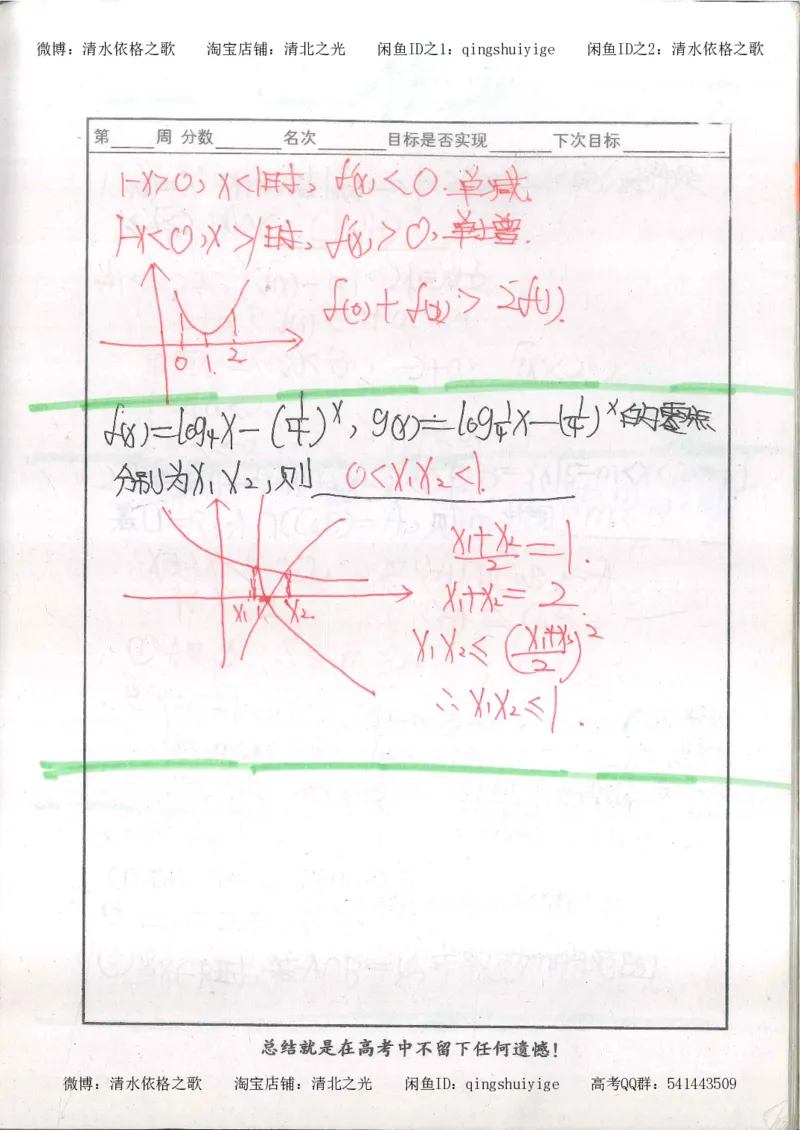 微博：清水依格之歌 淘宝店铺：清北之光 闲鱼ID之1：qingshuiyige 闲鱼ID之2：清水依格之歌
第 周 分数 名次 目标是否实现 下次目标
1-x>0，x<1时，f'(x)<0. 单减.
1-x<0，x>1时，f'(x)>0，单增.
f(0)+f(2)>2f(1).
0 1. 2
f(x)=log₄x-(1/4)^x，g(x)=log_{1/4}x-(1/4)^x的零点
分别为x₁ x₂，则 0<x₁x₂<1.
(x₁+x₂)/2=1.
x₁+x₂=2.
x₁ 1 x₂
x₁x₂≤((x₁+x₂)/2)²
∴x₁x₂≤1.
总结就是在高考中不留下任何遗憾！
微博：清水依格之歌 淘宝店铺：清北之光 闲鱼ID：qingshuiyige 高考QQ群：541443509